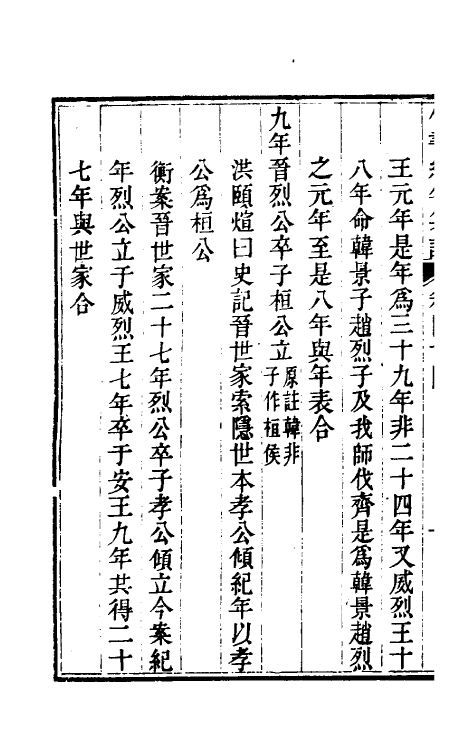 王元年是年爲三十九年非二十四年又威烈王十
八年命韓景子趙烈子及我師伐齊是爲韓景趙烈
之元年至是八年與年表合
九年晉烈公卒子桓公立原註韓非子作桓侯
洪頤煊曰史記晉世家索隱世本孝公傾紀年以孝
公爲桓公
衡案晉世家二十七年烈公卒子孝公傾立今案紀
年烈公立于威烈王七年卒于安王九年共得二十
七年與世家合